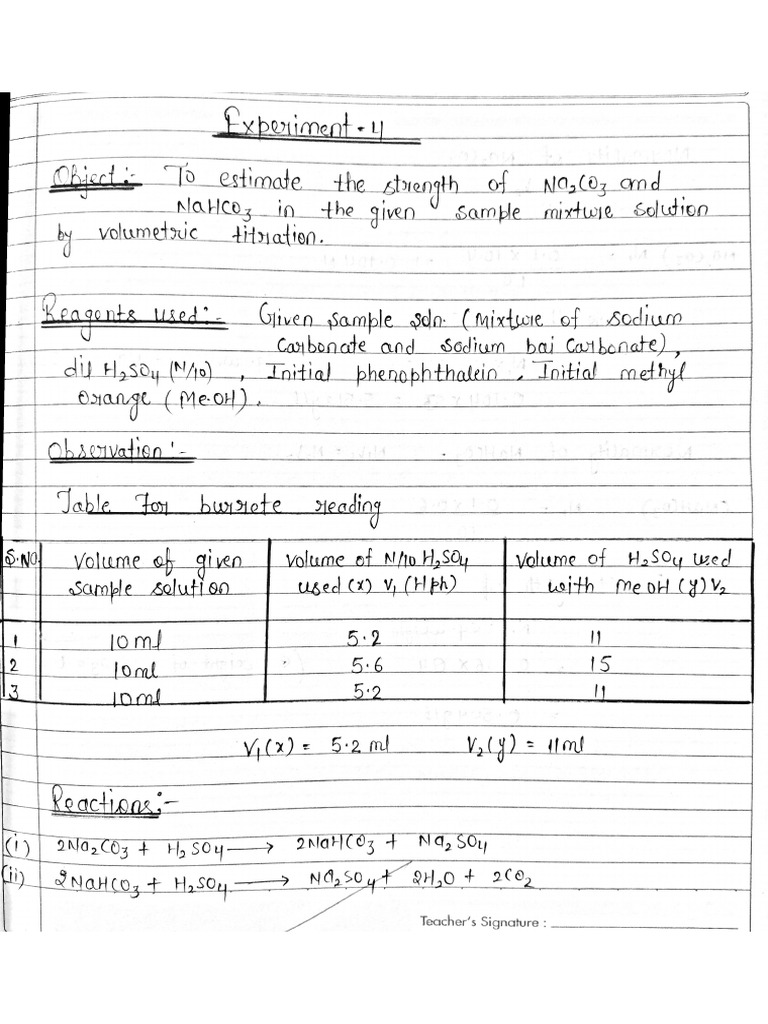 Experiment-4
Object:- To estimate the strength of Na2CO3 and
NaHCO3 in the given sample mixture solution
by volumetric titration.
Reagents used:- Given sample soln. (Mixture of sodium
Carbonate and sodium bai Carbonate),
dil H2SO4 (N/10) , Initial phenophthalein, Initial methyl
Orange (Me-OH).
Observation:-
Table for burrete reading
S.NO. Volume of given sample solution Volume of N/10 H2SO4 used (x) V1 (Hph) Volume of H2SO4 used with MeOH (y) V2
1 10ml 5.2 11
2 10ml 5.6 15
3 10ml 5.2 11
V1(x) = 5.2 ml V2(y) = 11ml
Reactions:-
(i) 2Na2CO3 + H2SO4 → 2NaHCO3 + Na2SO4
(ii) 2NaHCO3 + H2SO4 → Na2SO4 + 2H2O + 2CO2
Teacher's Signature :